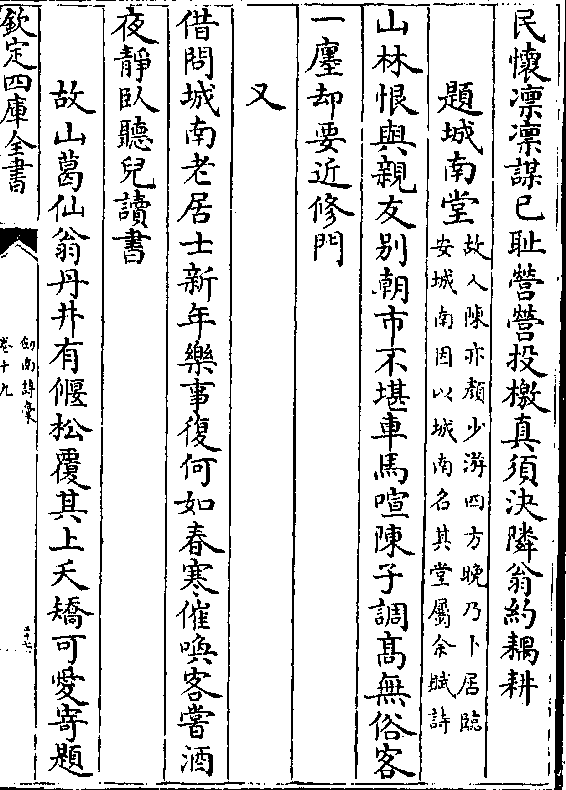 民懷凜凜謀已耻營營投檄真須決隣翁約耦耕
題城南堂
故人陳亦顔少游四方晚乃卜居臨
安城南因以城南名其堂屬余賦詩
山林恨與親友别朝市不堪車馬喧陳子調髙無俗客
一廛却要近修門
又
借問城南老居士新年樂事復何如春寒催喚客嘗酒
夜靜卧聽兒讀書
故山葛仙翁丹井有偃松覆其上夭矯可愛寄題
欽定四庫全書
劍南詩稾
卷十九